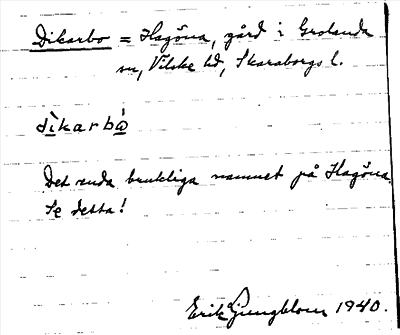 Dikarbo = Hagöna, gård i Grolanda
sn, Vilske hd, Skaraborgs l.
dìkarbǻ
Det enda brukliga namnet på Hagöna.
Se detta!
Erik Ljungblom 1940.